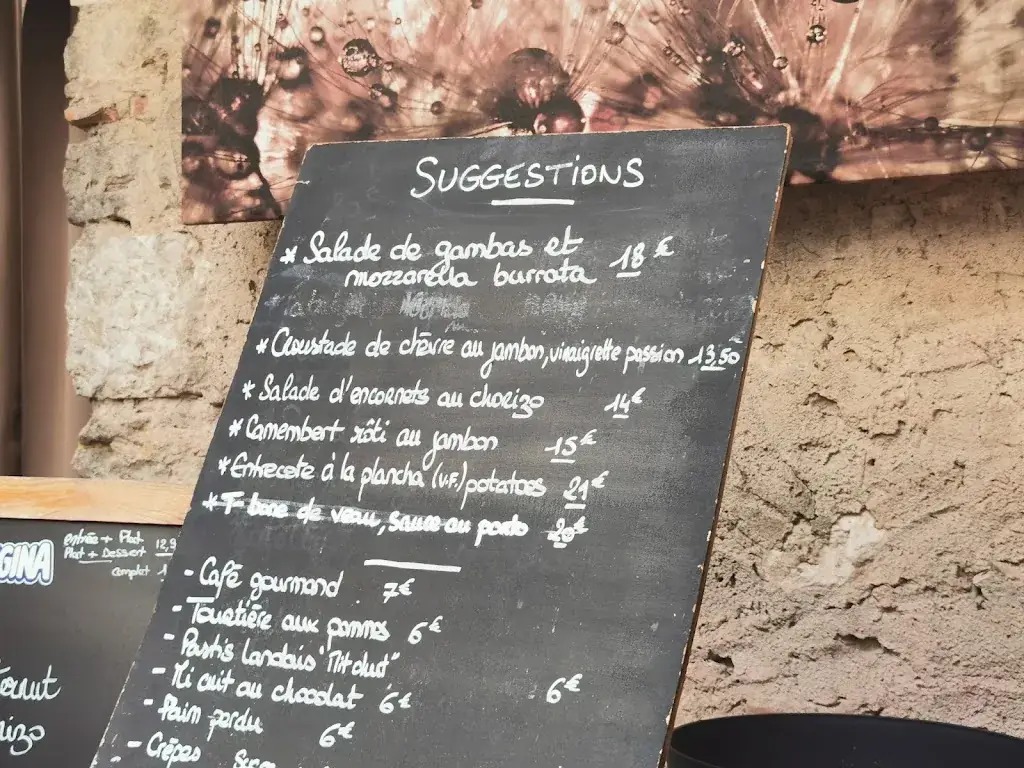 SUGGESTIONS
* Salade de gambas et
mozzarella burrata 18 €
* Croustade de chèvre au jambon, vinaigrette passion 13,50 €
* Salade d'encornets au chorizo 14 €
* Camembert rôti au jambon 15 €
* Entrecote à la plancha (V.F.) potatoes 21 €
* T bone de veau, sauce au porto 20 €
- Café gourmand 7€
- Tourtière aux pommes 6 €
- Pastis landais "Mit dust" 6 €
- Mi cuit au chocolat 6 €
- Pain perdu 6 €
- Crêpes
GINA
entrée + Plat
Plat + Dessert 12,9
complet